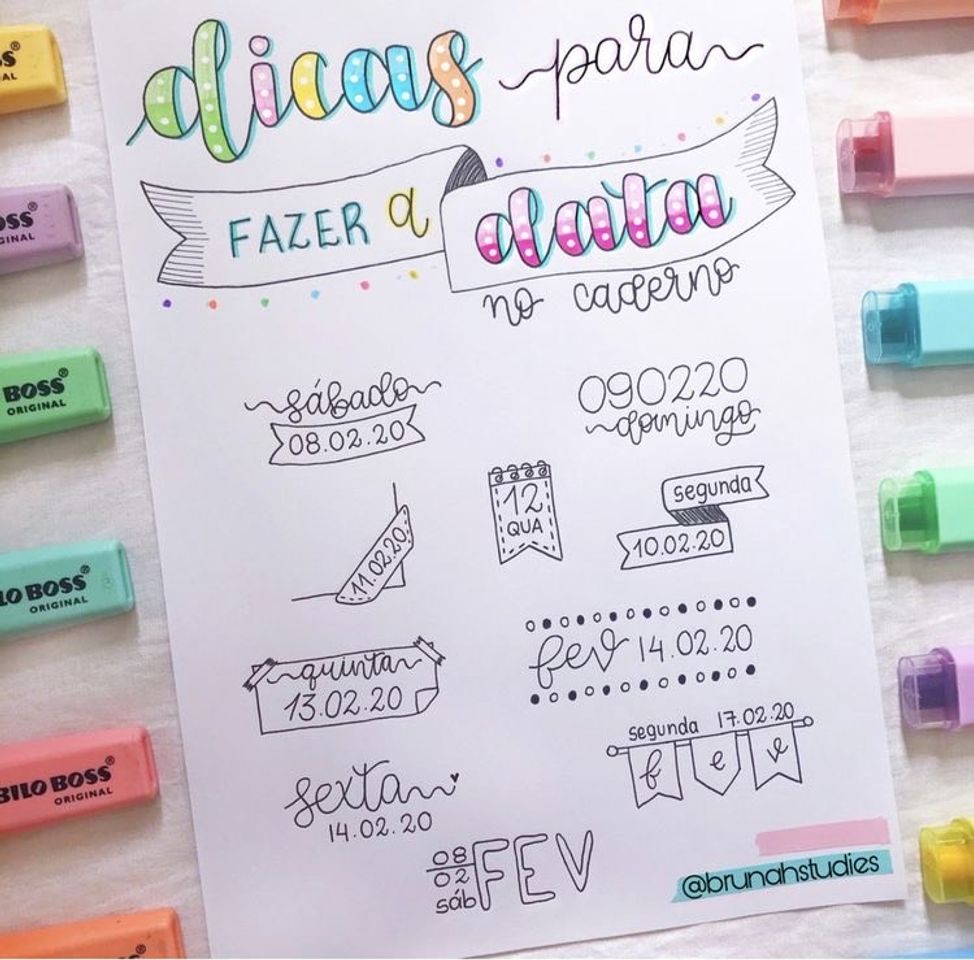 dicas para
FAZER a data
no caderno
sábado
08.02.20
090220
domingo
11.02.20
12
QUA
segunda
10.02.20
quinta
13.02.20
fev 14.02.20
sexta
14.02.20
segunda 17.02.20
fev
08
02
sáb
FEV
@brunahstudies
BOSS®
ORIGINAL
BOSS®
ORIGINAL
BILO BOSS®
ORIGINAL